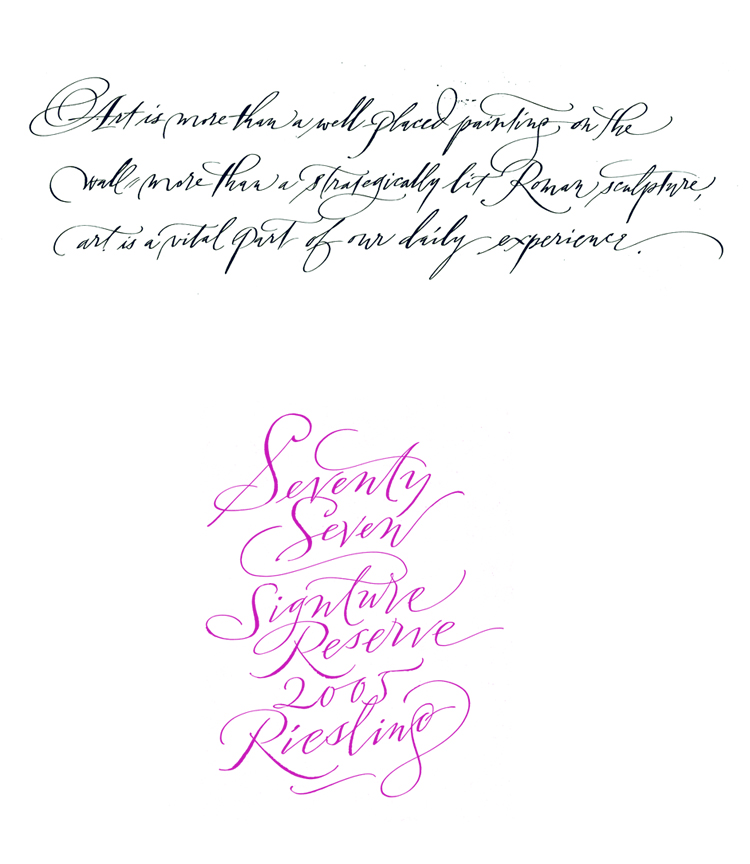 Art is more than a well-placed painting on the
wall - more than a strategically lit Roman sculpture,
art is a vital part of our daily experience.
Seventy
Seven
Signture
Reserve
2005
Riesling